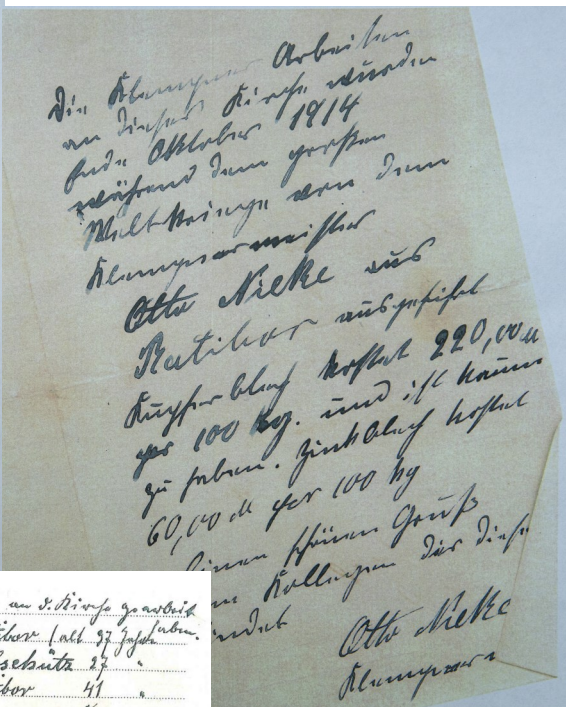 Die Klempner Arbeiten
an dieser Kirche wurden
Ende Oktober 1914
während dem großen
Weltkriege von dem
Klempnermeister
Otto Nielke aus
Ratibor ausgeführt
Kupferblech kostet 220,00 M
per 100 kg. und ist kaum
zu haben. Zinkblech kostet
60,00 M per 100 kg
Einen schönen Gruß
Kollegen der diese
findet
Otto Nielke
Klempnerm
an d. Kirche gearbeit
ibor (alt 37 Jahre haben.
schütz 27 "
ibor 41 "